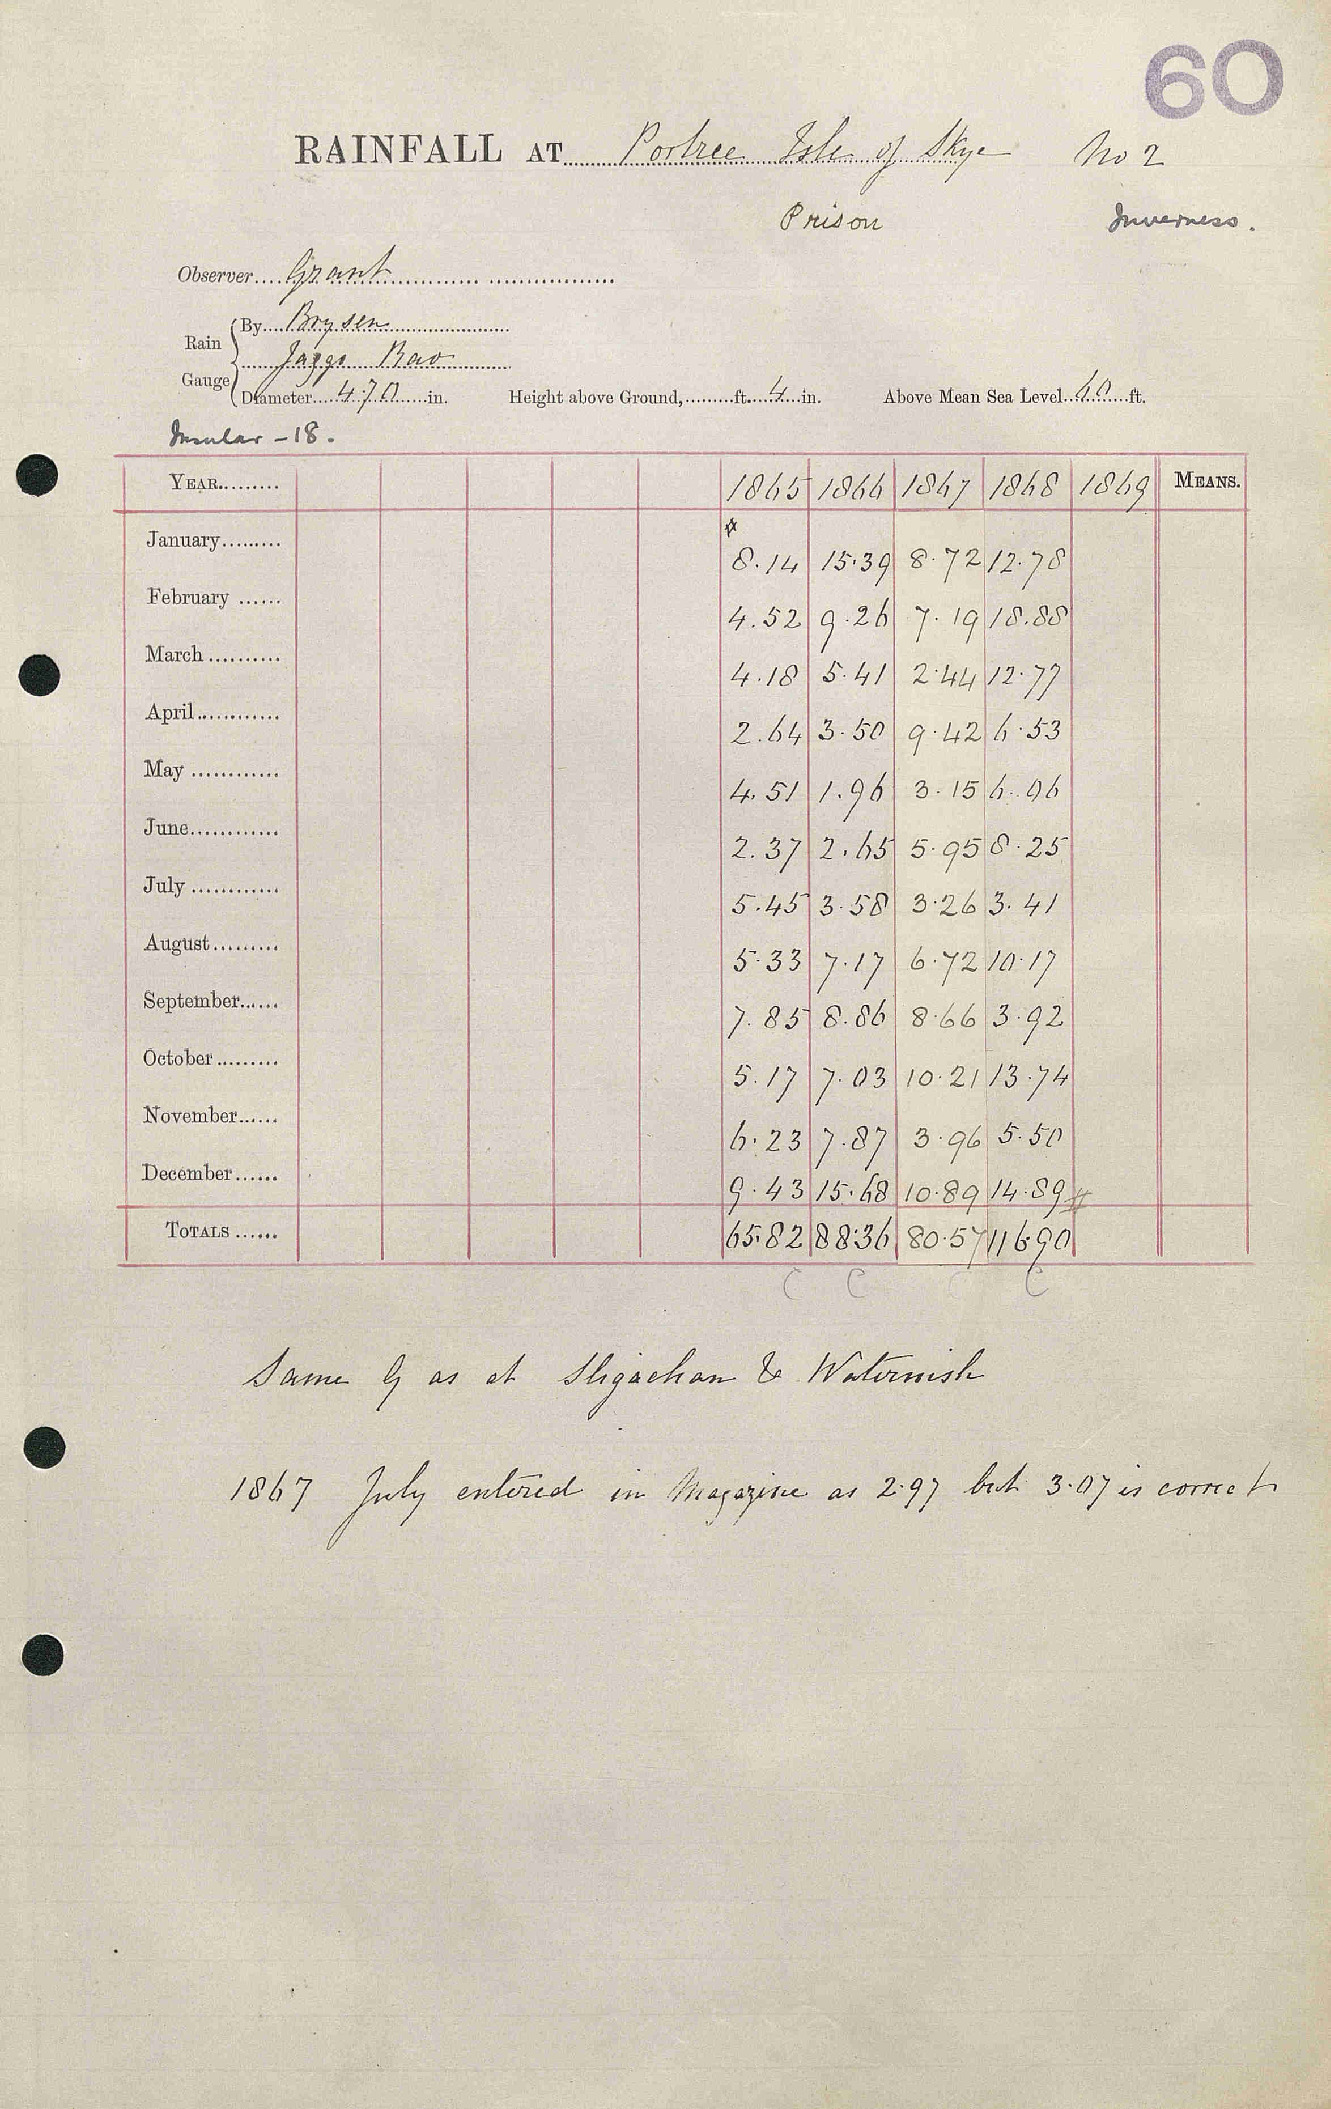 60
RAINFALL AT Portree Isle of Skye No 2
Prison Inverness.
Observer Grant
Rain Gauge By Brysen
Jaggs Row
Diameter 4.70 in. Height above Ground, ft. 4 in. Above Mean Sea Level 60 ft.
Insular - 18.
YEAR 1865 1866 1867 1868 1869 MEANS.
January 8.14 15.39 8.72 12.78
February 4.52 9.26 7.19 18.88
March 4.18 5.41 2.44 12.77
April 2.64 3.50 9.42 6.53
May 4.51 1.96 3.15 6.06
June 2.37 2.65 5.95 8.25
July 5.45 3.58 3.26 3.41
August 5.33 7.17 6.72 10.17
September 7.85 8.86 8.66 3.92
October 5.17 7.03 10.21 13.74
November 6.23 7.87 3.96 5.50
December 9.43 15.68 10.89 14.89
TOTALS 65.82 88.36 80.57 116.90
C C C C
Same G as at Sligachan & Waternish
1867 July entered in Magazine as 2.97 but 3.07 is correct